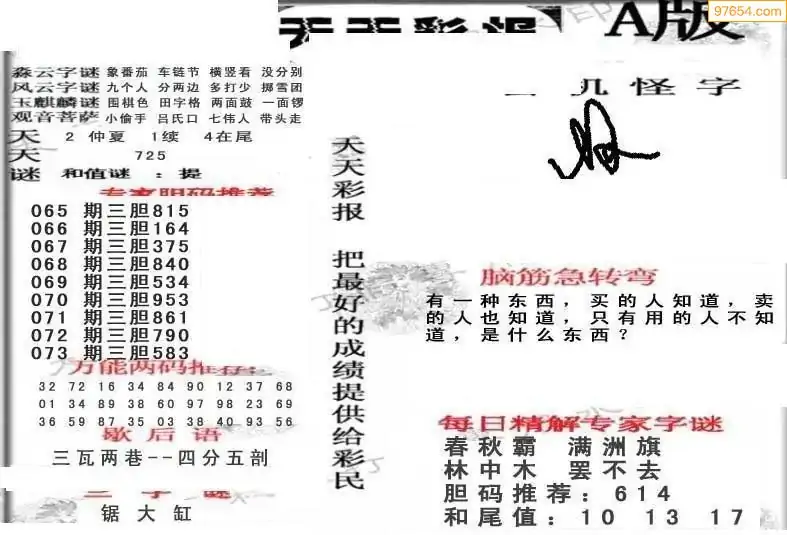 天天彩报 A版
97654.com
森云字谜 象番茄 车链节 横竖看 没分别
风云字谜 九个人 分两边 多打少 掷雪团
玉麒麟谜 围棋色 田字格 两面鼓 一面锣
观音菩萨 小偷手 吕氏口 七伟人 带头走
天 2 仲夏 1续 4在尾
天 725
谜 和值谜 : 提
专家胆码推荐
065 期三胆815
066 期三胆164
067 期三胆375
068 期三胆840
069 期三胆534
070 期三胆953
071 期三胆861
072 期三胆790
073 期三胆583
万能两码推荐:
32 72 16 34 84 90 12 37 68
01 34 89 38 60 97 98 23 69
36 59 87 35 03 38 40 93 56
歇后语
三瓦两巷--四分五剖
三字谜
锯大缸
天天彩报 把最好的成绩提供给彩民
玑怪字
脑筋急转弯
有一种东西，买的人知道，卖
的人也知道，只有用的人不知
道，是什么东西？
每日精解专家字谜
春秋霸 满洲旗
林中木 罢不去
胆码推荐: 614
和尾值: 10 13 17